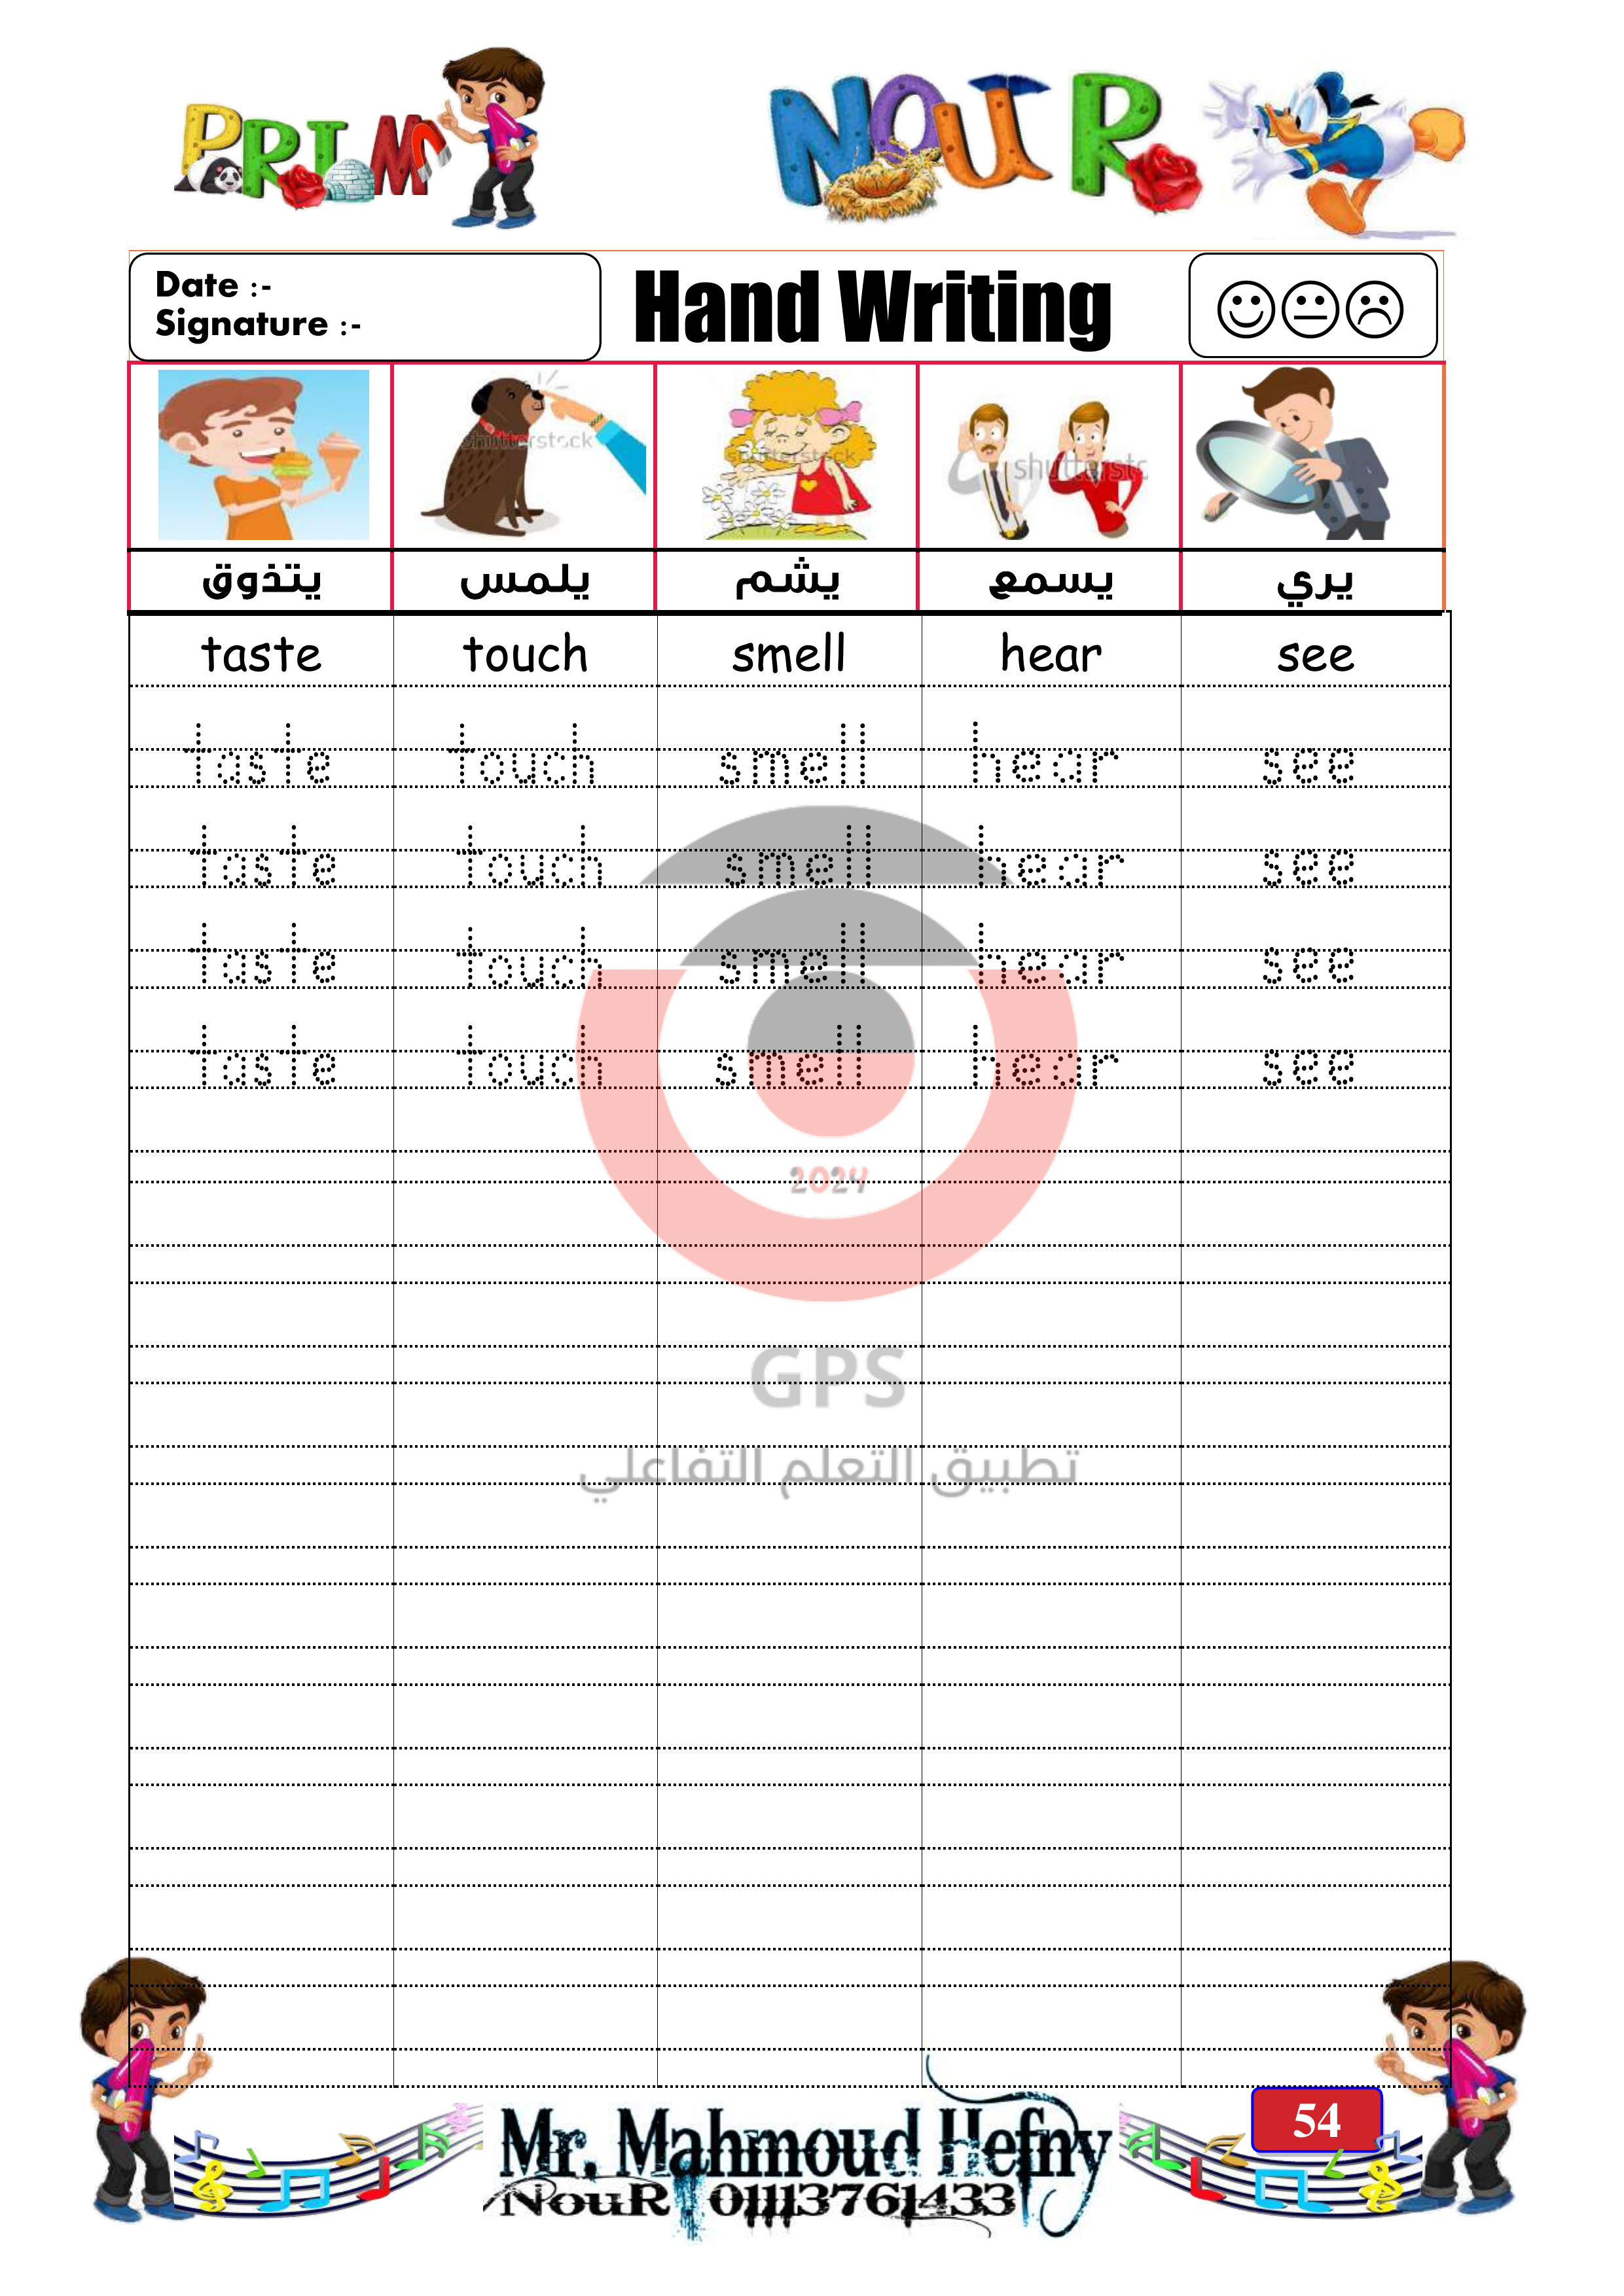 PRIM 1
NOUR
Date :-
Signature :-
Hand Writing
shutterstock
shutterstock
shutterstc
يتذوق يلمس يشم يسمع يري
taste touch smell hear see
taste touch smell hear see
taste touch smell hear see
taste touch smell hear see
taste touch smell hear see
2024
GPS
تطبيق التعلم التفاعلي
54
Mr. Mahmoud Hefny
NouR : 01113761433